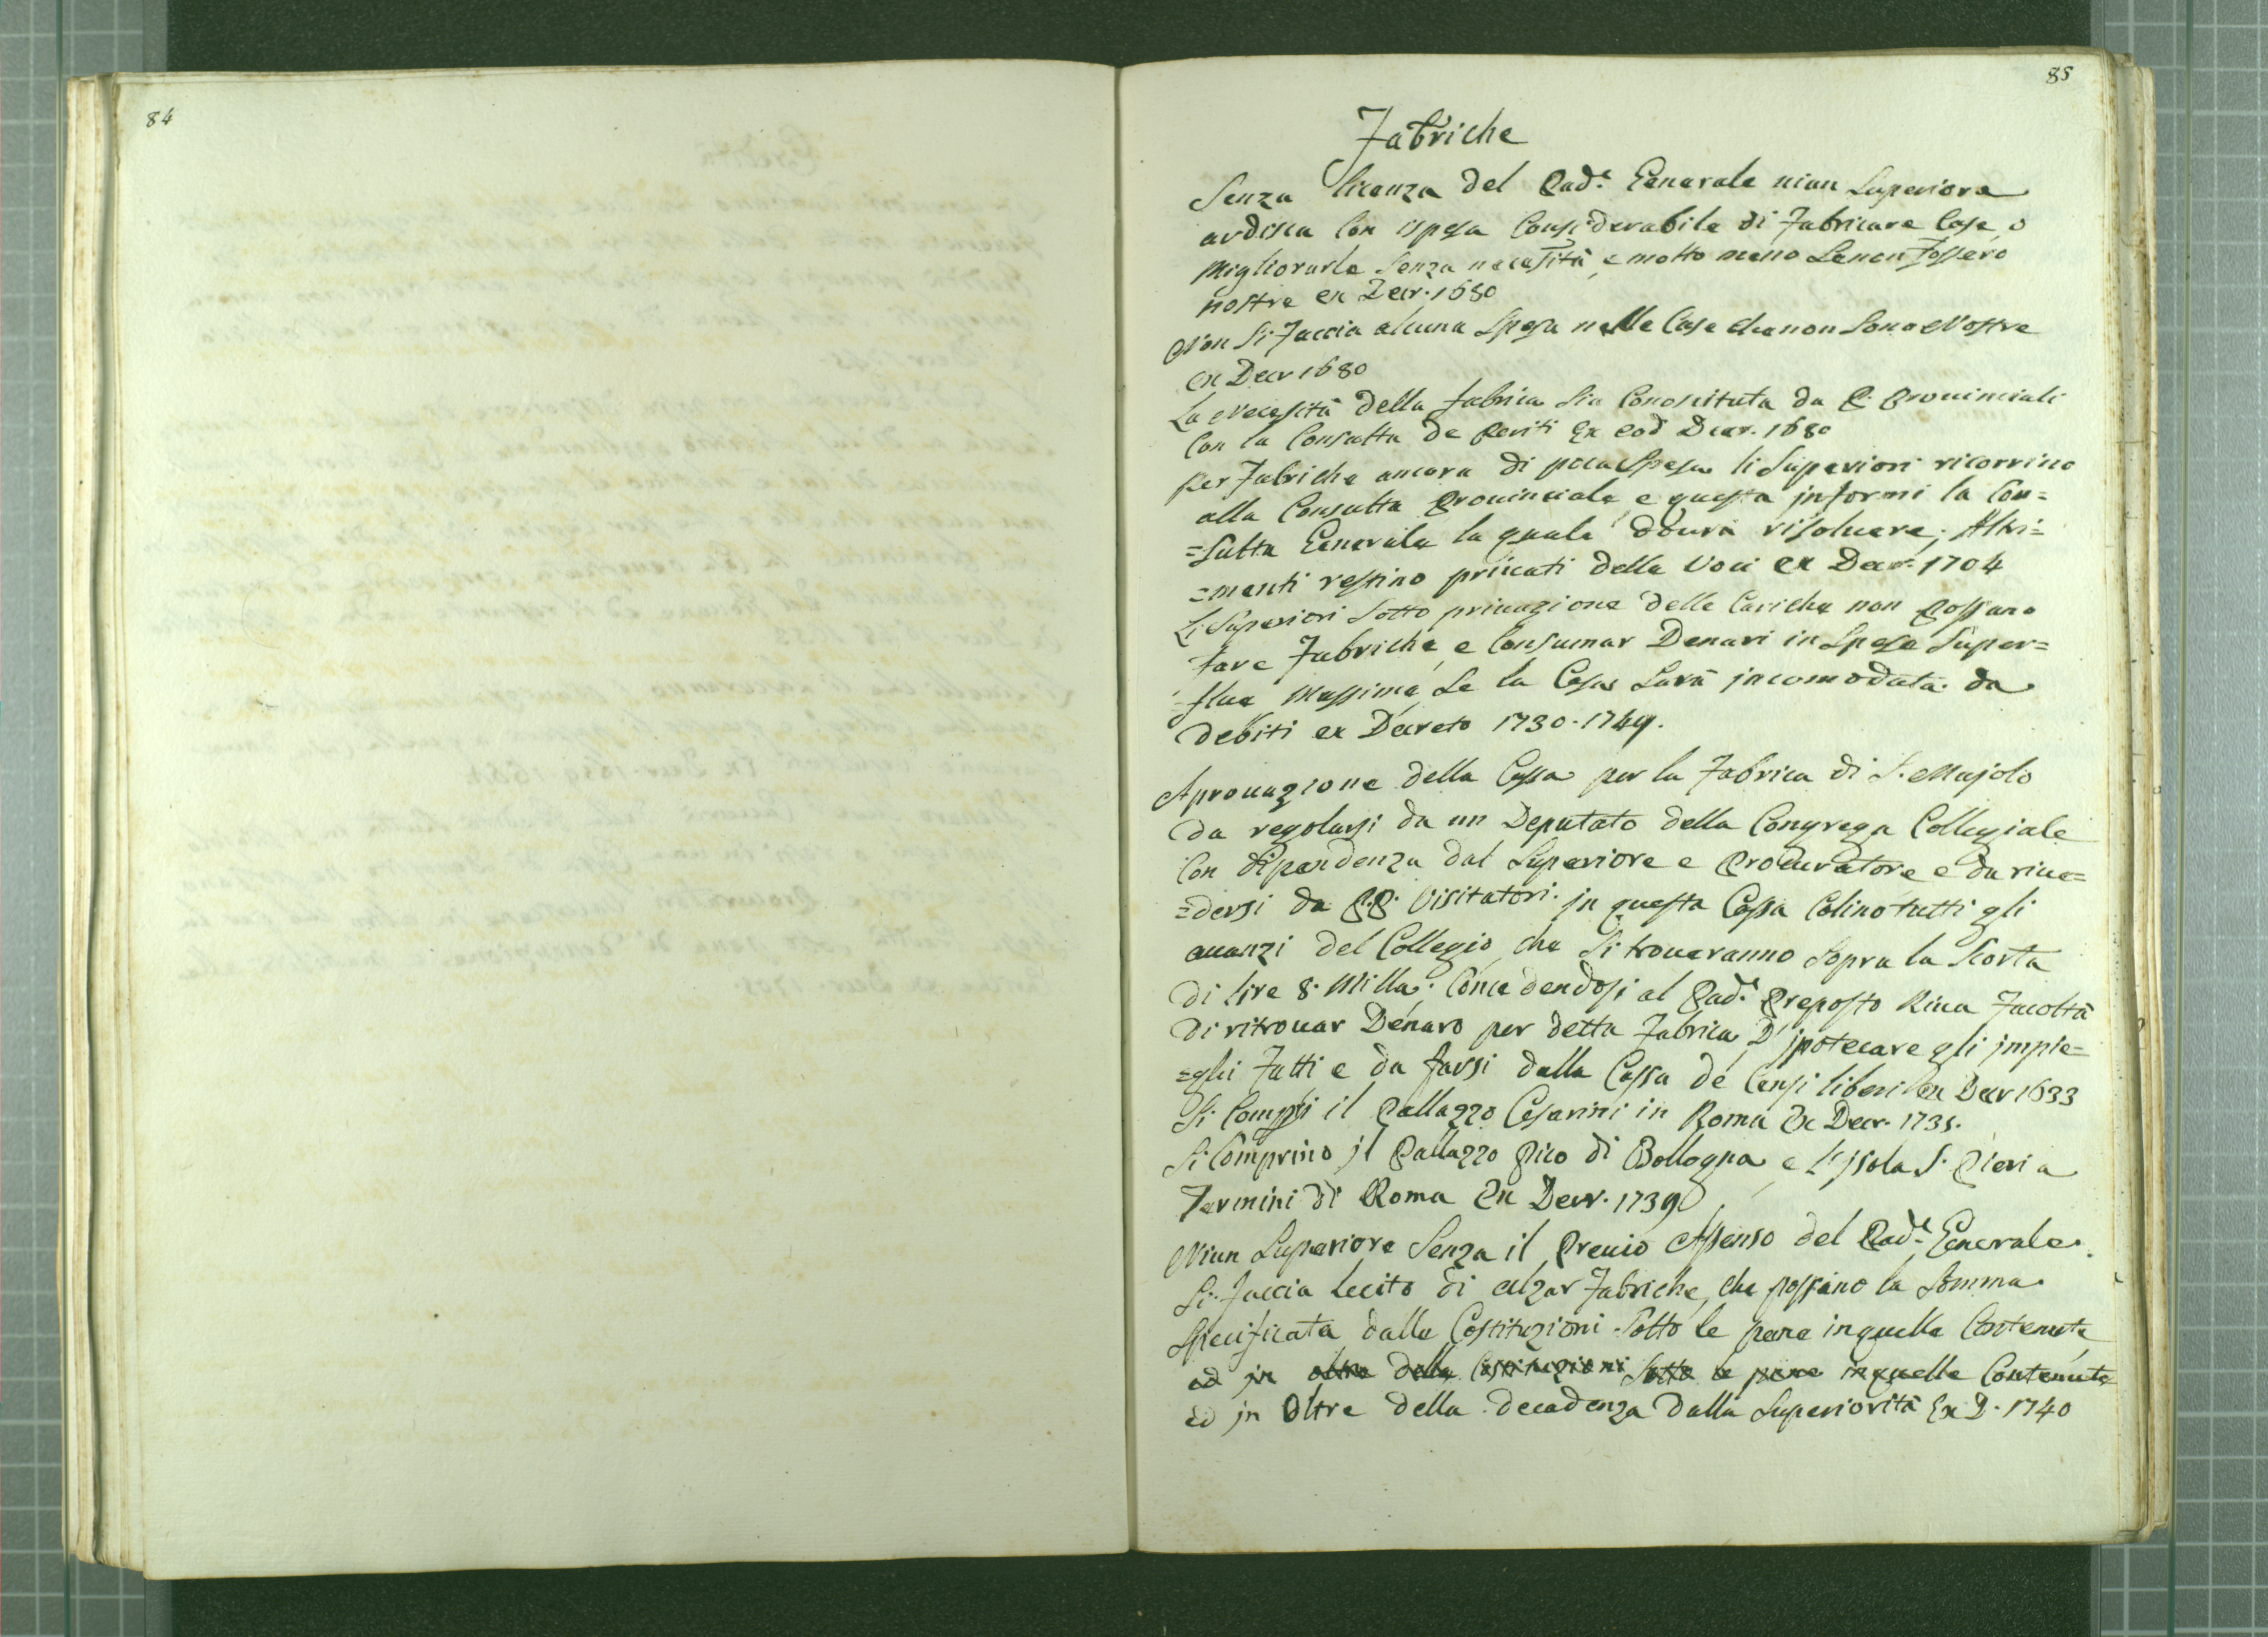 84
85
Fabriche
Senza licenza del Pad.e Generale niun Superiore
ardisca Con ispesa Considerabile di Fabricare Case, o
Migliorarle Senza necessità, e molto meno Se non fossero
nostre ex Decr. 1680
Non Si Faccia alcuna Spesa nelle Case che non Sono Nostre
ex Decr 1680
La Necessità della fabrica Sia Conosciuta da P. Prouinciali
Con la Consulta de Periti Ex eod Decr. 1680
Per Fabriche ancora di poca Spesa li Superiori ricorrino
alla Consulta Prouinciale, e questa informi la Con=
=sulta Generale la quale dourà risoluere; Altri=
=menti restino priuati della Voce ex Decr. 1704
Li Superiori Sotto priuazione delle Cariche non Possano
fare Fabriche, e Consumar Denari in Spese Super=
=flue Massime, Se la Casa Sarà jncomodata da
debiti ex Decreto 1730. 1749.
Aprouazione della Cassa per la Fabrica di S. Majolo
da regolarsi da un Deputato della Congrega Collegiale
Con dipendenza dal Superiore e Procuratore e da riue=
=dersi da P.P. Visitatori. jn questa Cassa Colino tutti gli
auanzi del Collegio, che Si troueranno Sopra la Scorta
di lire 8. Milla; Concedendosi al Pad.e Preposto Riua Facoltà
di ritrouar Denaro per detta Fabrica, D' jpotecare gli jmpie=
=ghi Fatti e da farsi dalla Cassa de Censi liberi ex Decr 1633
Si Compri il Pallazzo Cesarini in Roma Ex Decr. 1735.
Si Comprino jl Pallazzo Pico di Bollogna, e L'jsola S. Pieri a
Termini di Roma Ex Decr. 1739
Niun Superiore Senza il Preuio Assenso del Pad.e Generale
Si Faccia lecito di alzar Fabriche, che passino la Somma
Specificata dalle Costituzioni Sotto le pene in quelle Contenute
ed jn oltre della Costituzioni Sotto le pene in quelle Contenute
ed jn Oltre della decadenza dalla Superiorità Ex D. 1740